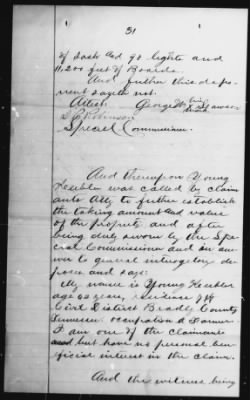 31
of sash and 90 lights and
11,200 feet of Boards.
And further this depo-
nent sayeth not.
Attest: George his X mark Lawson
Robinson
Special Commissioner.
And thereupon Young
Keebler was called by claim-
ants Atty to further establish
the taking amount and value
of the property and after
being duly sworn by the Spe-
cial Commissioner and in ans-
wer to general interogatory de-
poses and says:
My name is Young Keebler
age 40 years, residence
Civil District Bradley County
Tennessee. occupation a Farmer
I am one of the claimants
and but have no personal ben-
eficial interest in the claim.
And this witness being